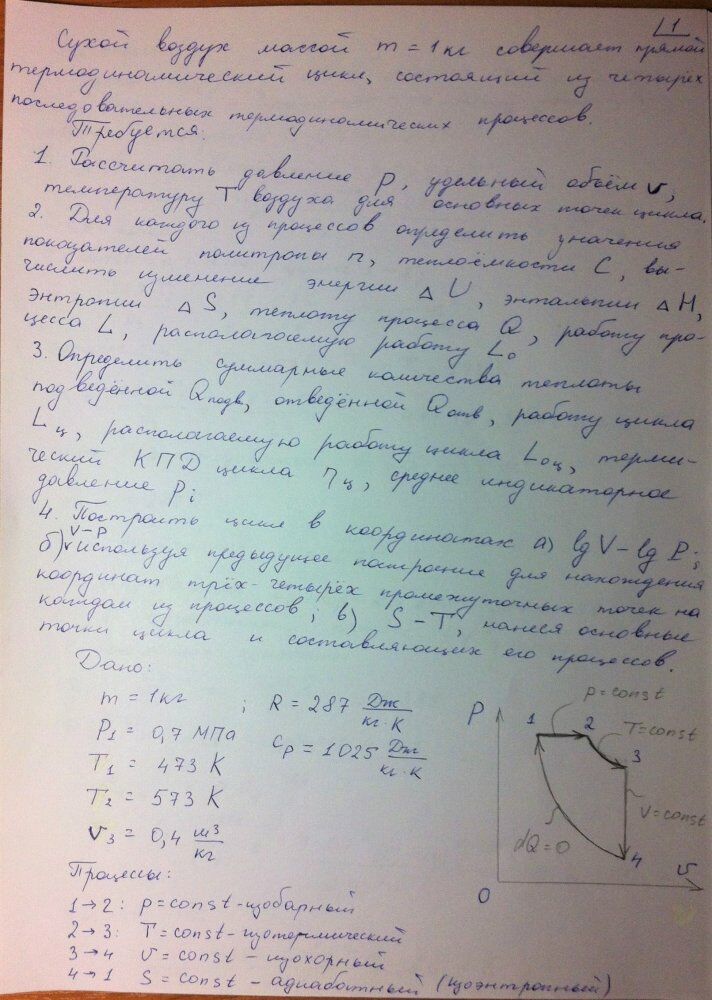 1
Сухой воздух массой m = 1 кг совершает прямой
термодинамический цикл, состоящий из четырёх
последовательных термодинамических процессов.
Требуется:
1. Рассчитать давление P, удельный объём v,
температуру T воздуха для основных точек цикла.
2. Для каждого из процессов определить значения
показателей политропы n, теплоёмкости C, вы-
числить изменение энергии Δ U, энтальпии Δ H,
энтропии Δ S, теплоту процесса Q, работу про-
цесса L, располагаемую работу L₀
3. Определить суммарные количества теплоты
подведённой Qподв, отведённой Qотв, работу цикла
Lц, располагаемую работу цикла Lоц, терми-
ческий КПД цикла ηц, среднее индикаторное
давление Pi
4. Построить цикл в координатах а) lg V – lg P;
б) V–P используя предыдущее построение для нахождения
координат трёх-четырёх промежуточных точек на
каждом из процессов; в) S – T, нанеся основные
точки цикла и составляющих его процессов.
Дано:
m = 1 кг ; R = 287 Дж/кг·К
P1 = 0,7 МПа cp = 1025 Дж/кг·К
T1 = 473 К
T2 = 573 К
v3 = 0,4 м³/кг
P
p=const
1
2
T=const
3
V=const
dQ=0
4
0
v
Процессы:
1→2: p=const-изобарный
2→3: T=const-изотермический
3→4 v=const - изохорный
4→1 S=const - адиабатный (изоэнтропный)